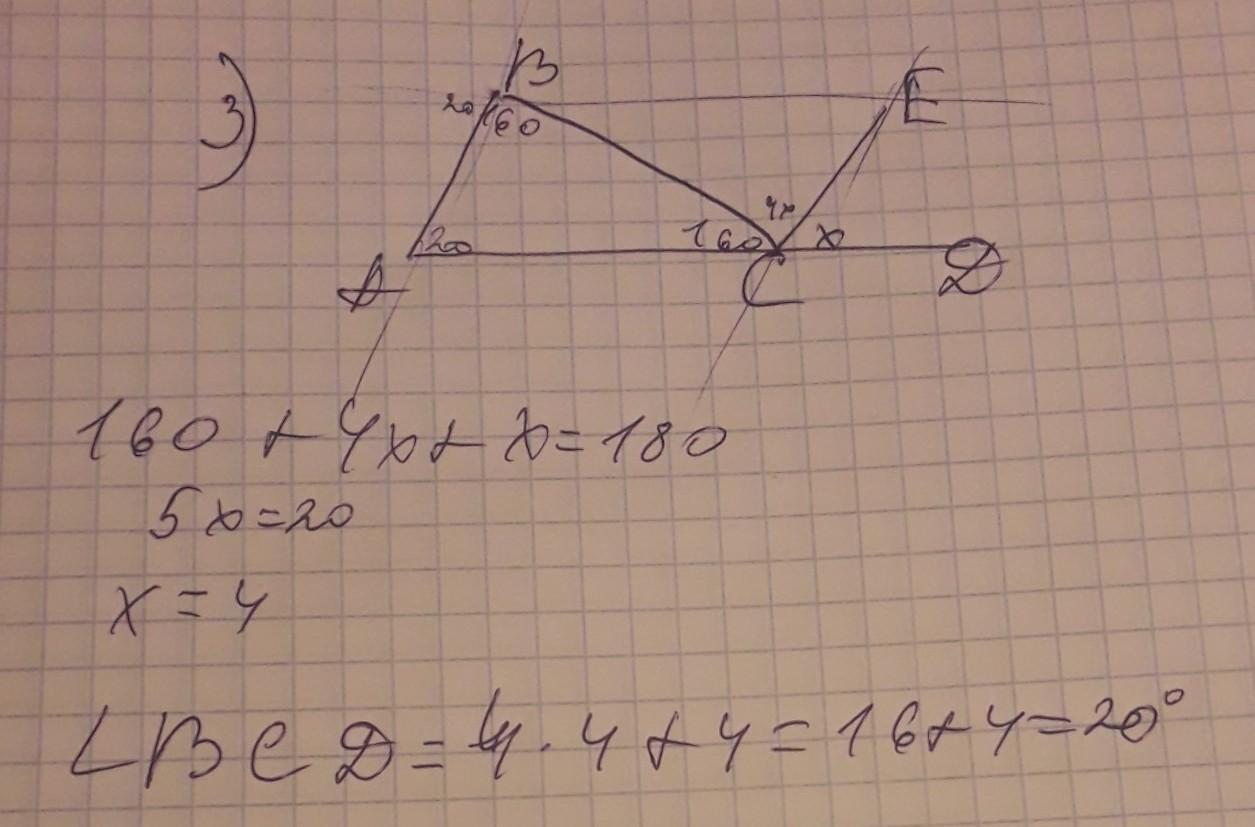 3)
B
E
20
160
4x
20
160
x
A
C
D
160 + 4x + x = 180
5x = 20
x = 4
∠BCD = 4 · 4 + 4 = 16 + 4 = 20°